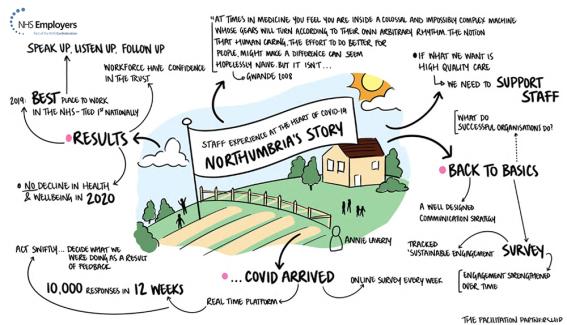 NHS Employers
Part of the NHS Confederation
SPEAK UP, LISTEN UP, FOLLOW UP
WORKFORCE HAVE CONFIDENCE
IN THE TRUST
2019: BEST PLACE TO WORK
IN THE NHS - TIED 1ST NATIONALLY
RESULTS
NO DECLINE IN HEALTH
& WELLBEING IN 2020
"AT TIMES IN MEDICINE YOU FEEL YOU ARE INSIDE A COLOSSAL AND IMPOSSIBLY COMPLEX MACHINE
WHOSE GEARS WILL TURN ACCORDING TO THEIR OWN ARBITRARY RHYTHM. THE NOTION
THAT HUMAN CARING, THE EFFORT TO DO BETTER FOR
PEOPLE, MIGHT MAKE A DIFFERENCE CAN SEEM
HOPELESSLY NAIVE. BUT IT ISN'T...
GWANDE 2008
STAFF EXPERIENCE AT THE HEART OF COVID-19
NORTHUMBRIA'S STORY
IF WHAT WE WANT IS
HIGH QUALITY CARE
WE NEED TO SUPPORT
STAFF
WHAT DO
SUCCESSFUL ORGANISATIONS DO?
BACK TO BASICS
A WELL DESIGNED
COMMUNICATION STRATEGY
TRACKED
'SUSTAINABLE ENGAGEMENT'
SURVEY
ENGAGEMENT STRENGTHENED
OVER TIME
ANNIE LAVERTY
...COVID ARRIVED
ONLINE SURVEY EVERY WEEK
REAL TIME PLATFORM
ACT SWIFTLY... DECIDE WHAT WE
WERE DOING AS A RESULT
OF FEEDBACK
10,000 RESPONSES IN 12 WEEKS
THE FACILITATION PARTNERSHIP